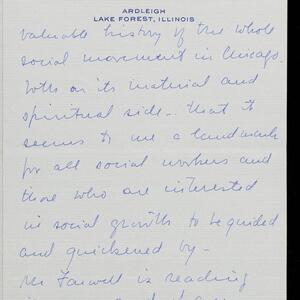 ARDLEIGH
LAKE FOREST, ILLINOIS
valuable history of the whole
social movement in Chicago.
both on its material and
spiritual side - that it
seems to me a landmark
for all social workers and
those who are interested
in social growth to be guided
and quickened by -
Mr Farwell is reading